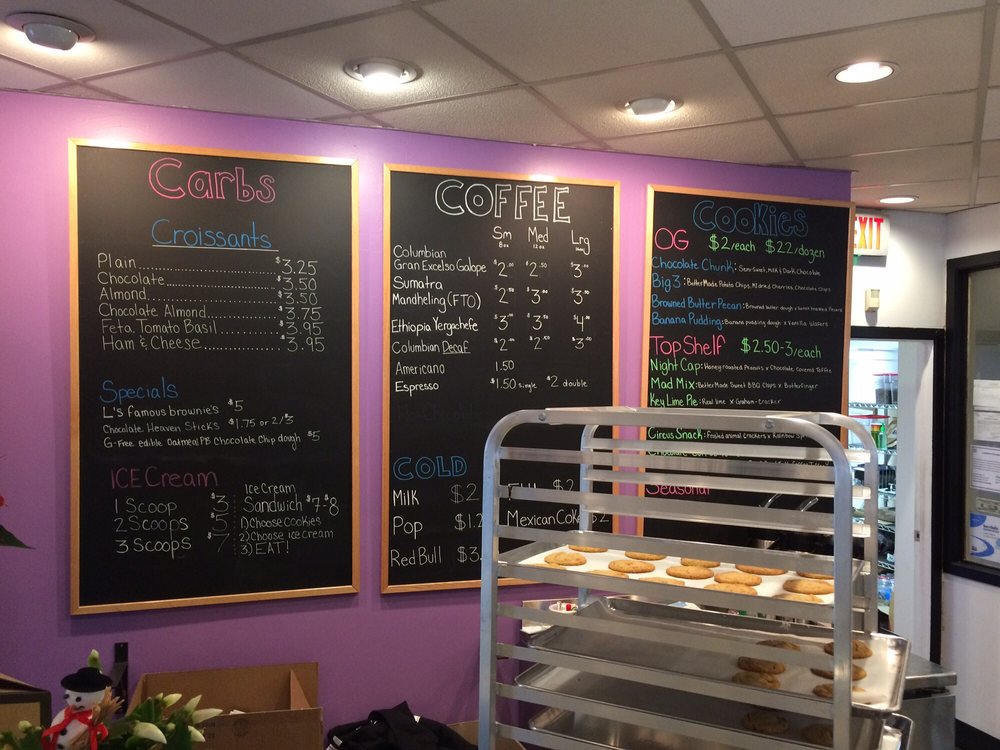 Carbs
Croissants
Plain $3.25
Chocolate $3.50
Almond $3.50
Chocolate Almond $3.75
Feta, Tomato Basil $3.95
Ham & Cheese $3.95
Specials
L's famous brownie's $5
Chocolate Heaven Sticks $1.75 or 2/$3
G-Free edible Oatmeal PB Chocolate Chip dough $5
ICE Cream
1 Scoop $3
2 Scoops $5
3 Scoops $7
Ice Cream
Sandwich $7-$8
1) Choose cookies
2) Choose ice cream
3) EAT!
COFFEE
Sm Med Lrg
8oz 12oz
Columbian
Gran Excelso Galope $2.00 $2.50 $3.00
Sumatra
Mandheling (FTO) $2.50 $3.00 $3.50
Ethiopia Yergachefe $3.00 $3.50 $4.00
Columbian Decaf $2.00 $2.50 $3.00
Americano 1.50
Espresso $1.50 single $2 double
COLD
Milk $2
Pop $1.2
Red Bull $3.
$2
Mexican Coke $2
Cookies
OG $2/each $22/dozen
Chocolate Chunk: Semi Sweet, Milk & Dark Chocolate
Big 3: Butter Made Potato Chips, MI dried Cherries, Chocolate Chips
Browned Butter Pecan: Browned butter dough x Sweet toasted Pecans
Banana Pudding: Banana pudding dough x Vanilla Wafers
Top Shelf $2.50-3/each
Night Cap: Honey roasted Peanuts x Chocolate Covered Toffee
Mad Mix: Better Made Sweet BBQ Chips x Butterfinger
Key Lime Pie: Real lime x Graham-cracker
Circus Snack: Frosted animal crackers x Rainbow
Seasonal
EXIT